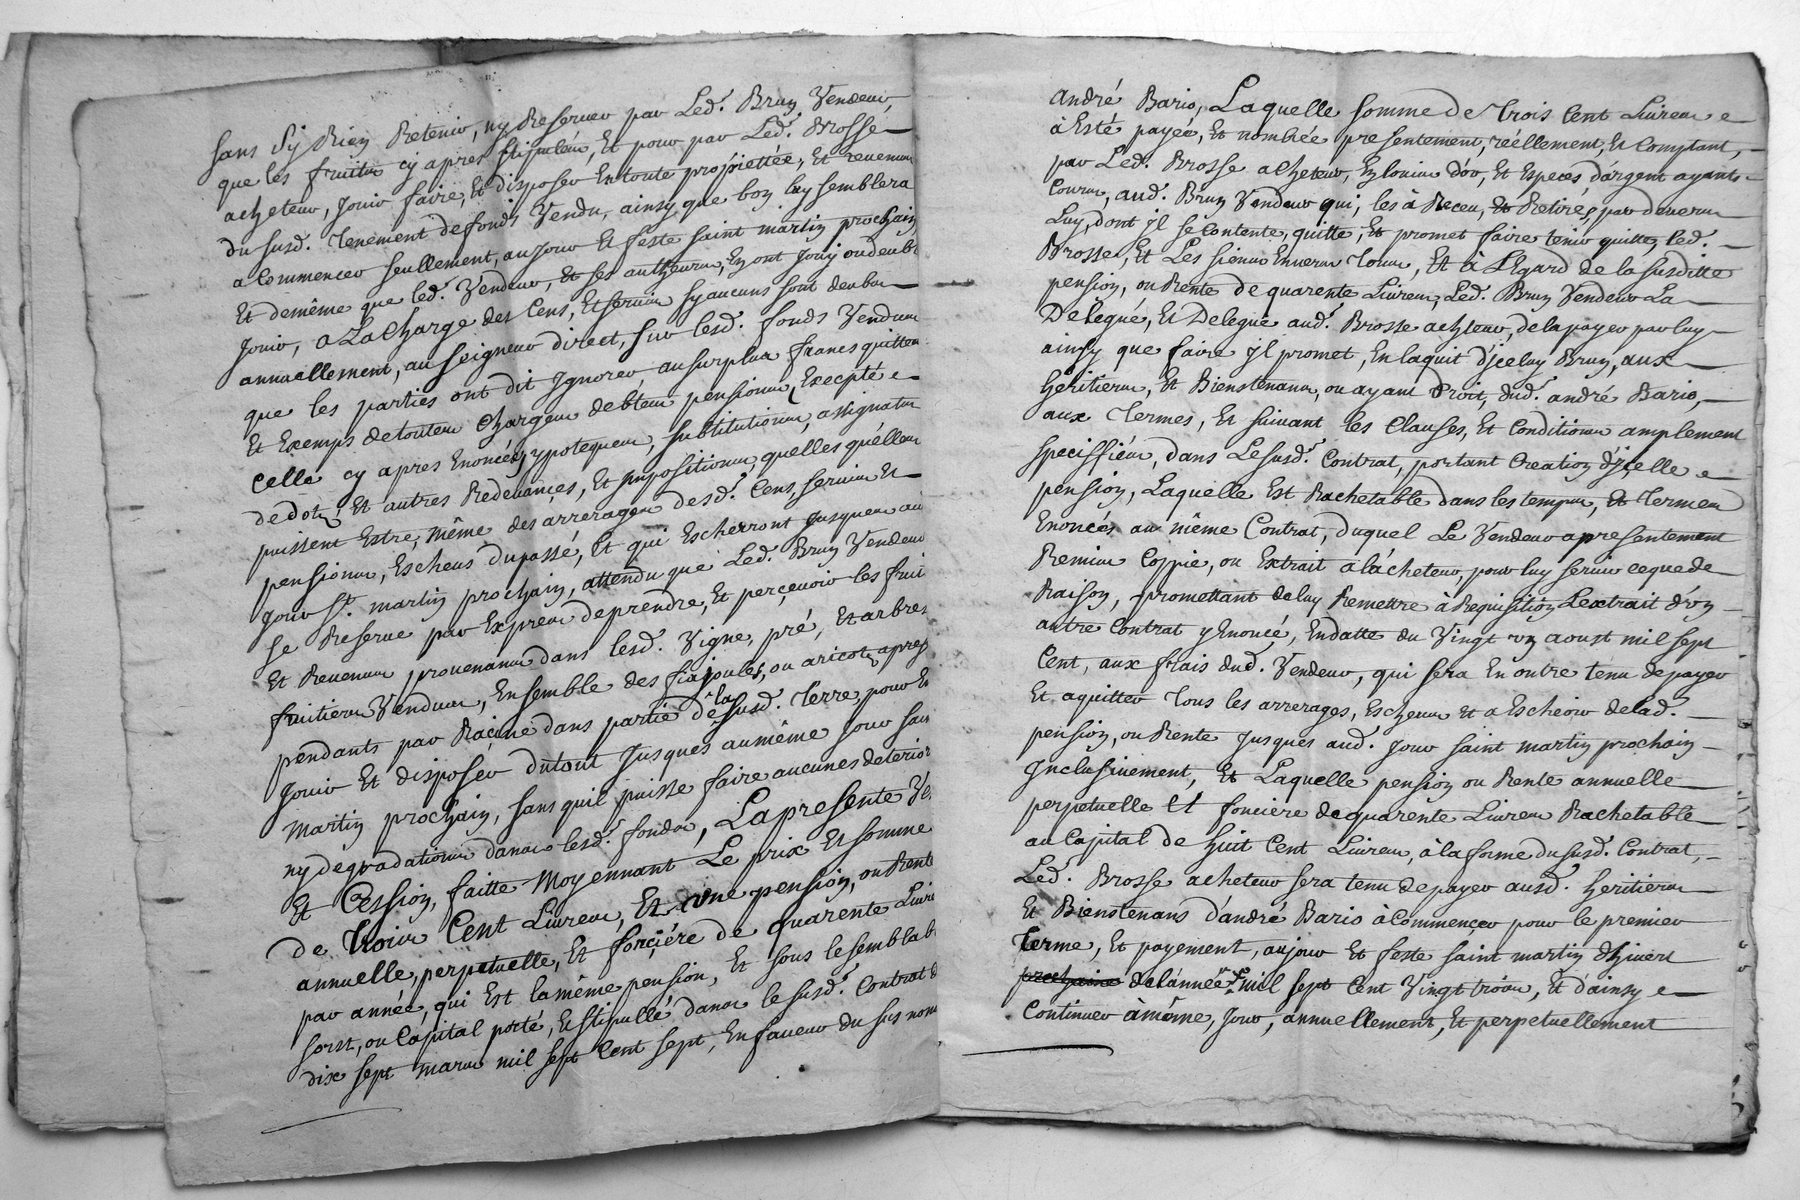 sans s'y Rien Retenir, ny Reserver par Led.^t Brun Vendeur,
que les fruits cy apres stipulés, Et pour par Led.^t Brosse
acheteur, Jouir faire, Et disposer En toute propriettée, Et revenus
du susd. tenement de fonds Vendu, ainsy que bon luy semblera
a Commencer seullement, au Jour Et feste saint martin prochain,
Et demême que led.^t Vendeur, Et ses autheurs, En ont Jouy ou deub
Jouir, a La Charge des Cens, Et servis sy aucuns sont deubs
annuellement, au seigneur direct, sur lesd. fonds Vendus
que les parties ont dit Ignorer au surplus francs quittes
Et Exemps de toutes Charges debtes pensions, Execpté
celle cy apres Enoncés, ypoteques, substitutions, assignats
de dot, Et autres Redevances, Et Impositions, quelles quélles
puissent Estre, même des arrerages desd.^t Cens, servis Et
pensions, Escheus du passé, Et qui Escherront Jusques au
Jour S^t. martin prochain, attendu que Led. Brun Vendeur
se Reserve par Exprès de prendre, Et perçevoir les frui
Et Revenus provenants dans lesd. Vigne, pré, Et arbres
fruitiers Vendus, Ensemble des fajoules, ou aricots apres
pendants par Raçine dans partie de la susd. terre, pour En
Jouir Et disposér dutout Jusques au même Jour sain
Martin prochain, sans quil puisse faire aucunes deterior
ny degradations dans lesd.^t fonds, La presente Ven
Et Cession, faitte Moyennant Le prix Et somme
de trois Cent Livres, Et une pension, ou Rente
annuelle, perpetuelle, Et fonçiére de quarente Livre
par année, qui Est la même pension, Et sous le semblab
sorst, ou Capital porté, Et stipullé dans le susd.^t Contrat d
dix sept mars mil sept Cent sept, En faveur du sus nom
André Bario, Laquelle somme de trois Cent Livres
à Esté payée, Et nombrée presentement, réellement, Et Comptant,
par Led. Brosse acheteur, En louis d'ór, Et Especes d'argent ayants
Cours, aud. Brun Vendeur qui, les à Receu, Et Retiré, par devers
Luy, dont jl se Contente, quitte, Et promet faire tenir quitte, led.
Brosse, Et Les siens Envers tous, Et à L'Egard de la susditte
pension, ou Rente de quarente Livres, Led. Brun Vendeur La
Délegué, Et Delegue aud.^t Brosse achteur, de la payer par luy
ainsy que faire jl promet, En laquit d'jceluy Brun, aux
hérittiers, Et Bienstenans, ou ayant Droit, dud.^t andré Bario,
aux termes, Et suivant les Clauses, Et Conditions amplement
specifliés, dans Le susd.^t Contrat, portant Creation d'jcelle
pension, Laquelle Est Rachetable dans les temps, Et termes
Enoncés au même Contrat, duquel Le Vendeur a presentement
Remis Coppie, ou Extrait à l'ácheteur, pour luy servir ce que de
Raison, promettant de luy Remettre à Requisition L'extrait d'vn
autre Contrat y Enoncé, En datte du Vingt vn aoust mil sept
Cent, aux frais dud. Vendeur, qui sera En outre tenu de payer
Et aquitter tous les arrerages, Escheus Et a Escheoir de lad.
pension, ou Rente Jusques aud. Jour saint martin prochain
Inclusivement, Et Laquelle pension ou Rente annuelle
perpetuelle Et fonciere de quarénte Livres Rachetable
au Capital de huit Cent Livres, à la forme du susd. Contrat,
Led. Brosse acheteur sera tenu de payer ausd. heritiers
Et Bienstenans d'andré Bario à Commençer pour le premier
terme, Et payement, au jour Et feste saint martin dhivers
prochaine de l'année mil sept Cent Vingt trois, Et d'ainsy
Continuer à même, Jour, annuellement, Et perpetuellement